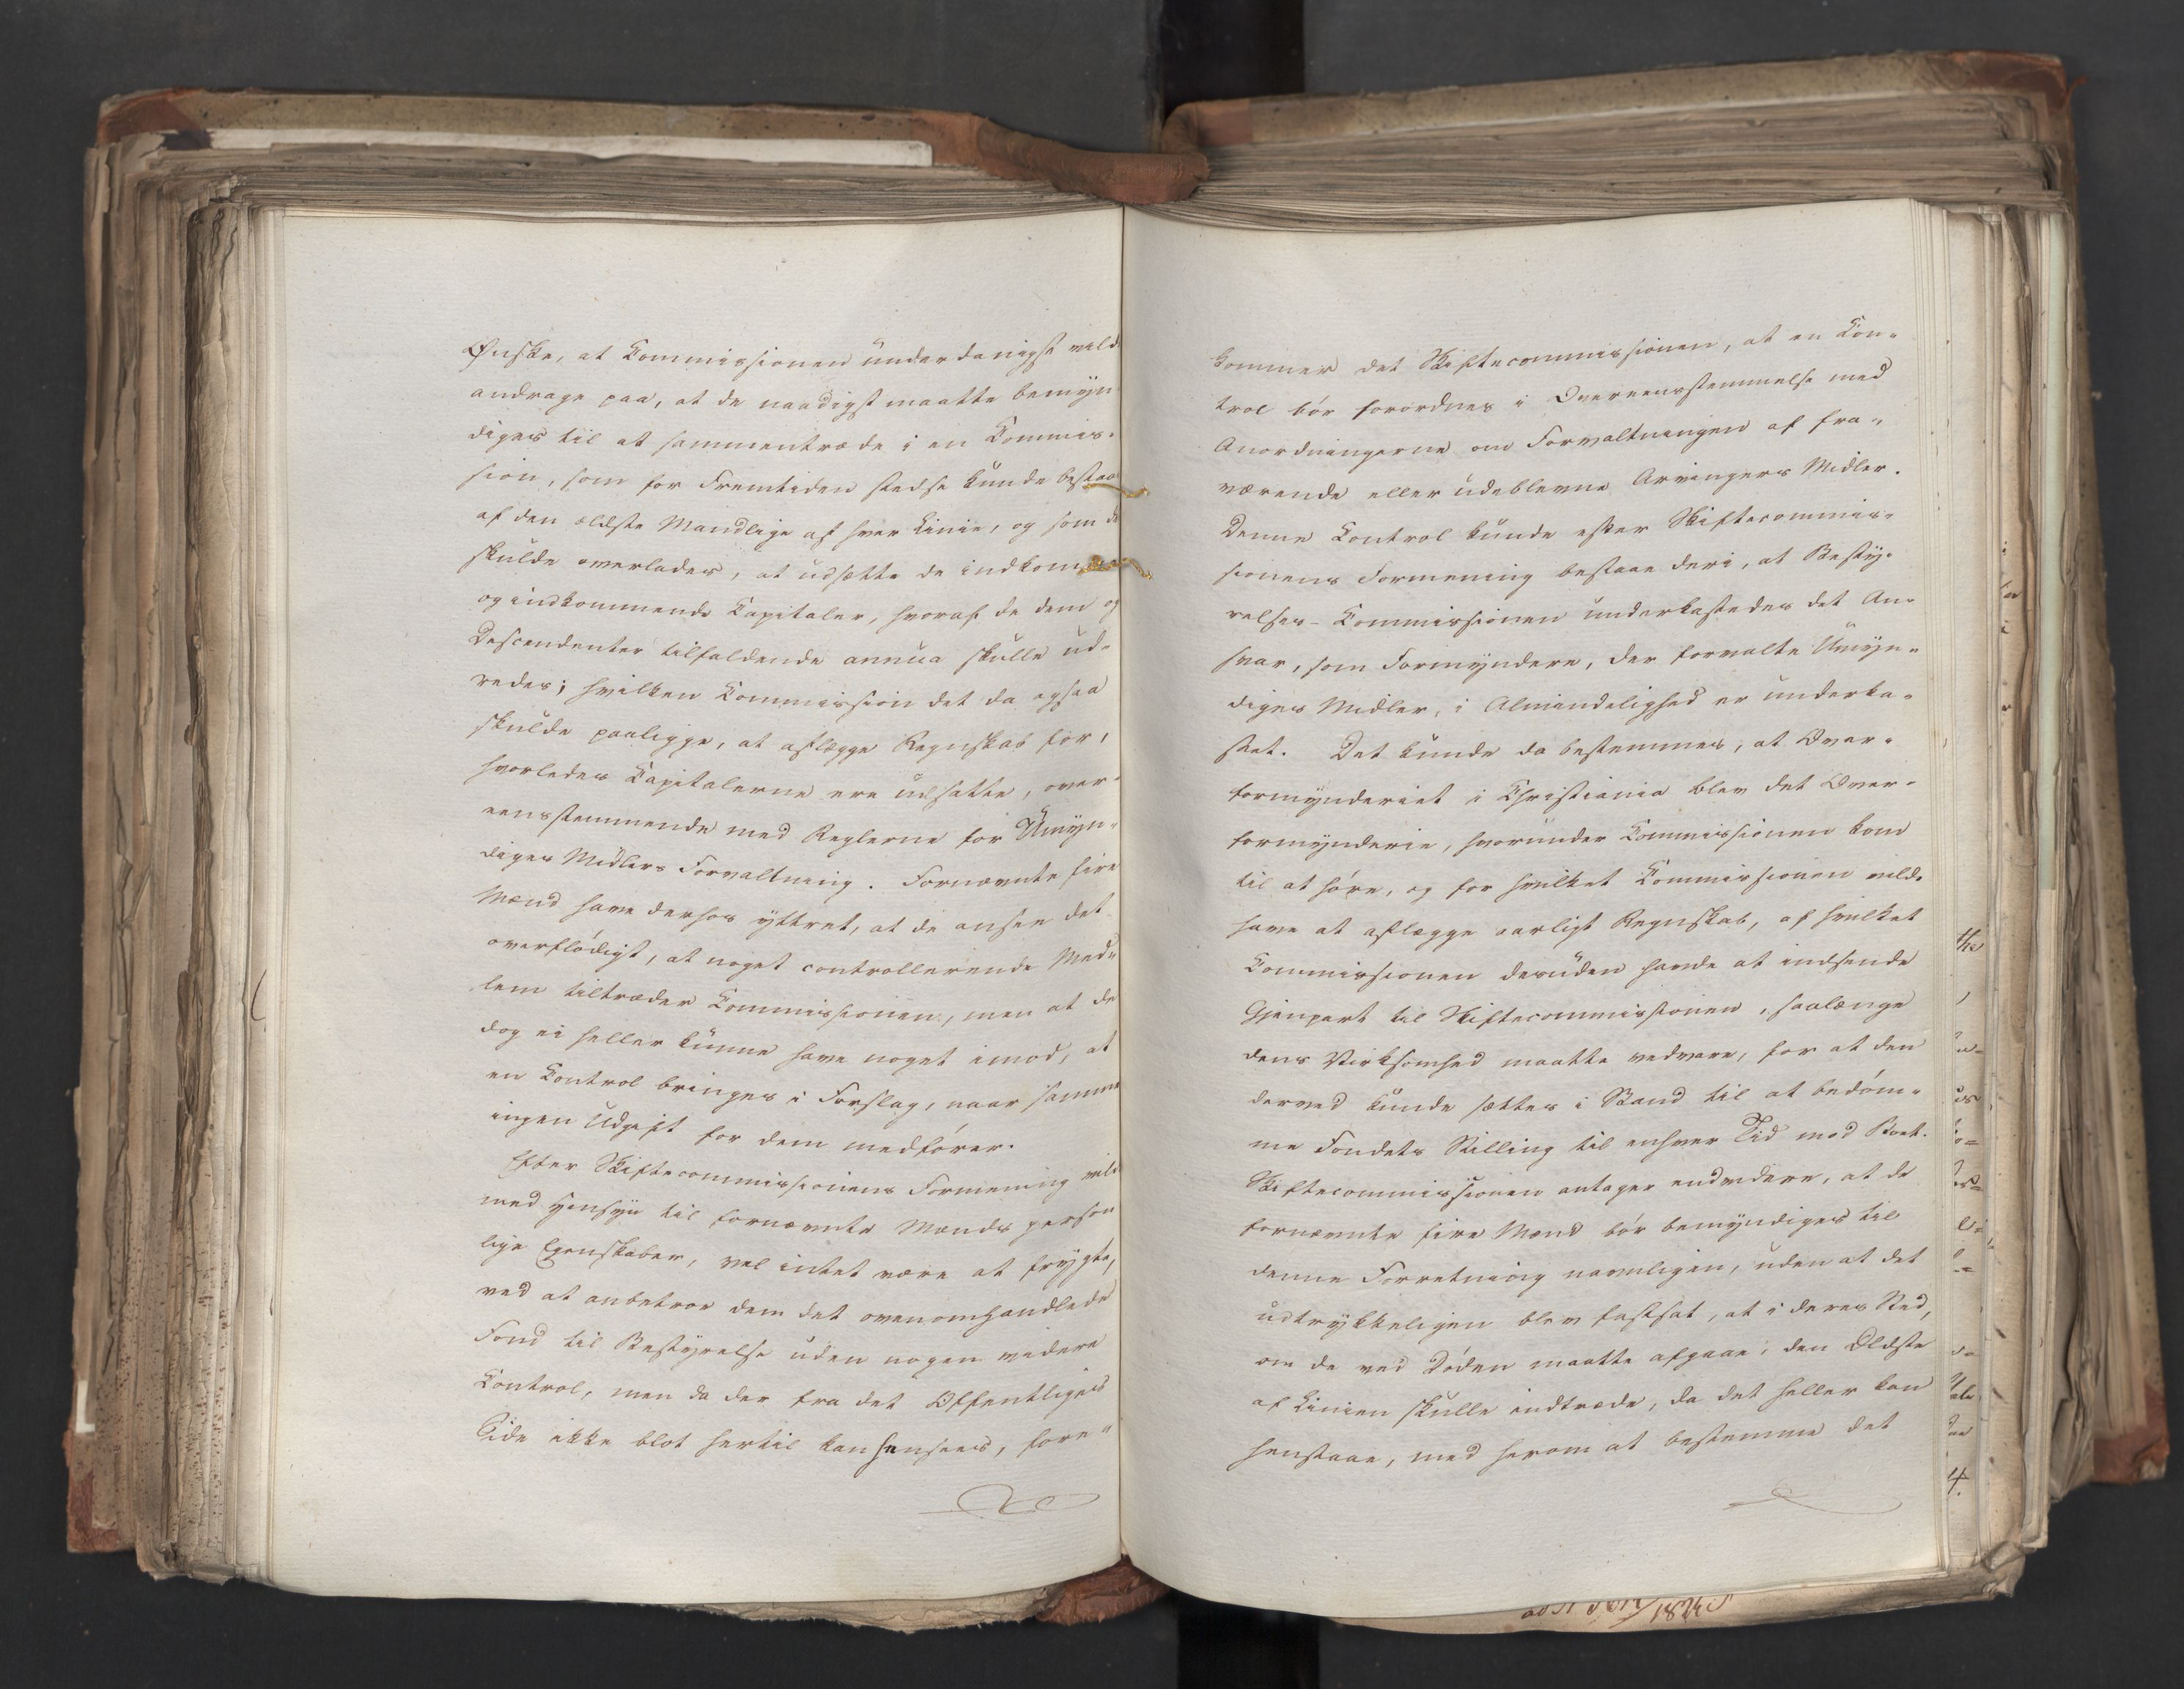 Ønske, at Commissionen underdanigst vilde
andrage paa, at de naadigst maatte bemyn-
diges til at sammentræde i en Commis-
sion, som for Fremtiden stedse kunde bestaae
af den ældste Mandlige af hver Linie, og som da
skulde overlades, at udsætte de indkomne
og indkommende Capitaler, hvoraf de dem og
Descendenter tilfaldende annua skulle ud-
redes; hvilken Commission det da ogsaa
skulde paaligge, at aflægge Regnskab for,
hvorledes Capitalerne ere udsatte, over-
eensstemmende med Reglerne for Umyn-
diges Midlers Forvaltning. Fornævnte fire
Mænd have derhos yttret, at de ansee det
overflødigt, at noget controllerende Med-
lem tiltræder Commissionen, men at de
dog ei heller kunne have noget imod, at
en Control bringes i Forslag, naar samme
ingen Udgift for dem medfører.
Efter Skiftecommissionens Formening vilde
med Hensyn til fornævnte Mænds person
lige Egenskaber, vel intet være at frygte,
ved at anbetroe dem det ovenomhandlede
Fond til Bestyrelse uden nogen videre
Control, men da der fra det Offentliges
Side ikke blot hertil kan hensees, fore-
kommer det Skiftecommissionen, at en Con-
trol bør forordnes i Overeensstemmelse med
Anordningerne om Forvaltningen af fra-
værende eller udeblevne Arvingers Midler.
Denne Control kunde efter Skiftecommis-
sionens Formening bestaae deri, at Besty-
relses-Commissionen underkastedes det An-
svar, som Formyndere, der forvalte Umyn-
diges Midler, i Almindelighed er underka-
stet. Det kunde da bestemmes, at Over-
formynderiet i Christiania blev det Over-
formynderie, hvorunder Commissionen kom
til at høre, og for hvilket Commissionen vilde
have at aflægge aarligt Regnskab, af hvilket
Commissionen desuden havde at indsende
Gjenpart til Skiftecommissionen, saalænge
dens Virksomhed maatte vedvare, for at den
derved kunde sættes i Stand til at bedøm-
me Fondets Stilling til enhver Tid mod Boet.
Skiftecommissionen antager endvidere, at de
fornævnte fire Mænd bør bemyndiges til
denne Forretning navnligen, uden at det
udtrykkeligen blev fastsat, at i deres Sted,
om de ved Døden maatte afgaae, den Ældste
af Linien skulle indtræde, da det heller kan
henstaae, med herom at bestemme det